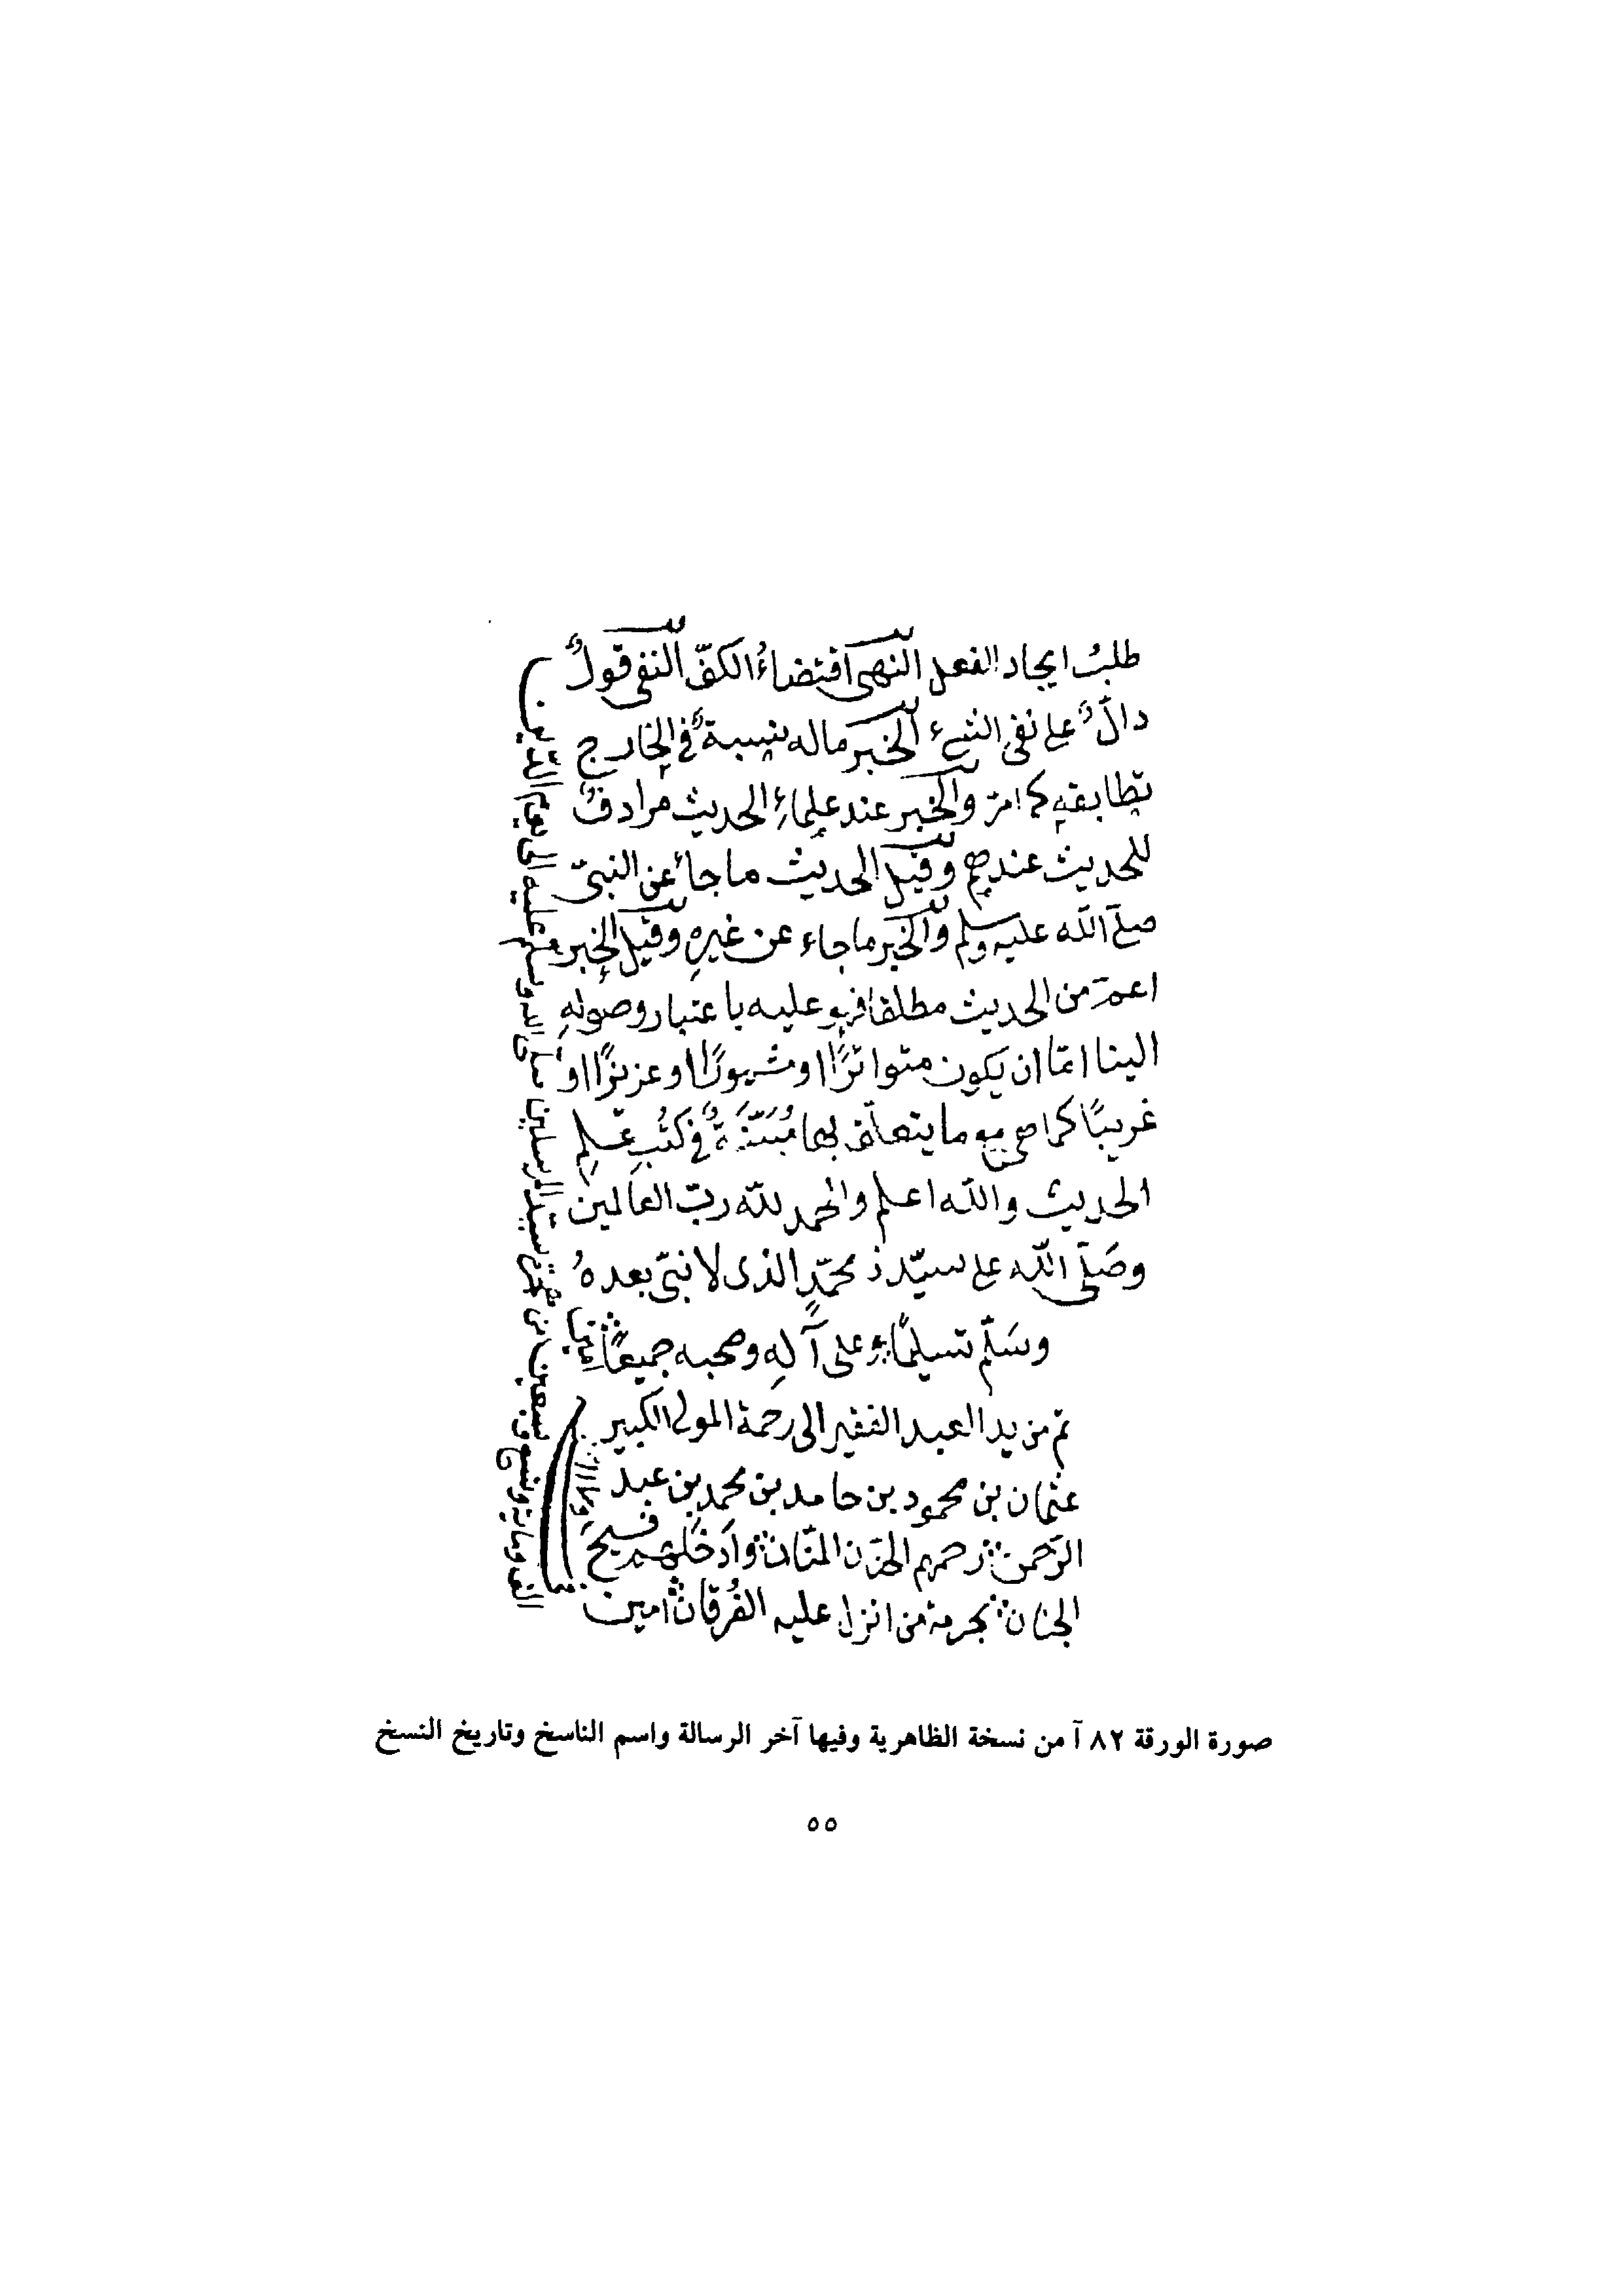 طلبُ ايجاد الفعل النهى اقتضاءُ الكفّ النفى قولٌ
دالٌّ على نفى الشىء الخبر ماله نسبةٌ فى الخارج
تطابقه كما مرّ والخبر عند علماءِ الحديث مرادفٌ
للحديث عندهم وقيل الحديث ما جاء عن النبىّ
صلى الله عليه وسلم والخبر ما جاء عن غيرهِ وقيل الخبر
اعمّ من الحديث مطلقا فهو عليه باعتبار وصولهِ
الينا امّا ان يكون متواترًا او مشهورًا او عزيزًا او
غريبًا كما هى وما يتعلّق بها مُبَيَّنَةٌ فى كتُب علم
الحديث والله اعلم والحمد لله ربّ العالمين
وصَلّى الله على سيّدنا محمّدٍ الذى لا نبىّ بعدهُ
وسَلّم تسليمًا وعلى آلهِ وصحبه جميعًا
تمّ من يد العبد الفقير الى رحمة المولى الكبير
عثمان بن محمود بن حامد بن محمد بن عبد
الرّحمن رحمهم الحنّان المنّان وادْخَلهم فسيح
الجنان بحرمة من انزل عليه الفُرقان امين
الف ومايه وتسع وتسعين من هجرة سيّد المرسلين صلى الله وسلم عليه الى يوم الدّين
صورة الورقة ٨٢ آ من نسخة الظاهرية وفيها آخر الرسالة واسم الناسخ وتاريخ النسخ
٥٥